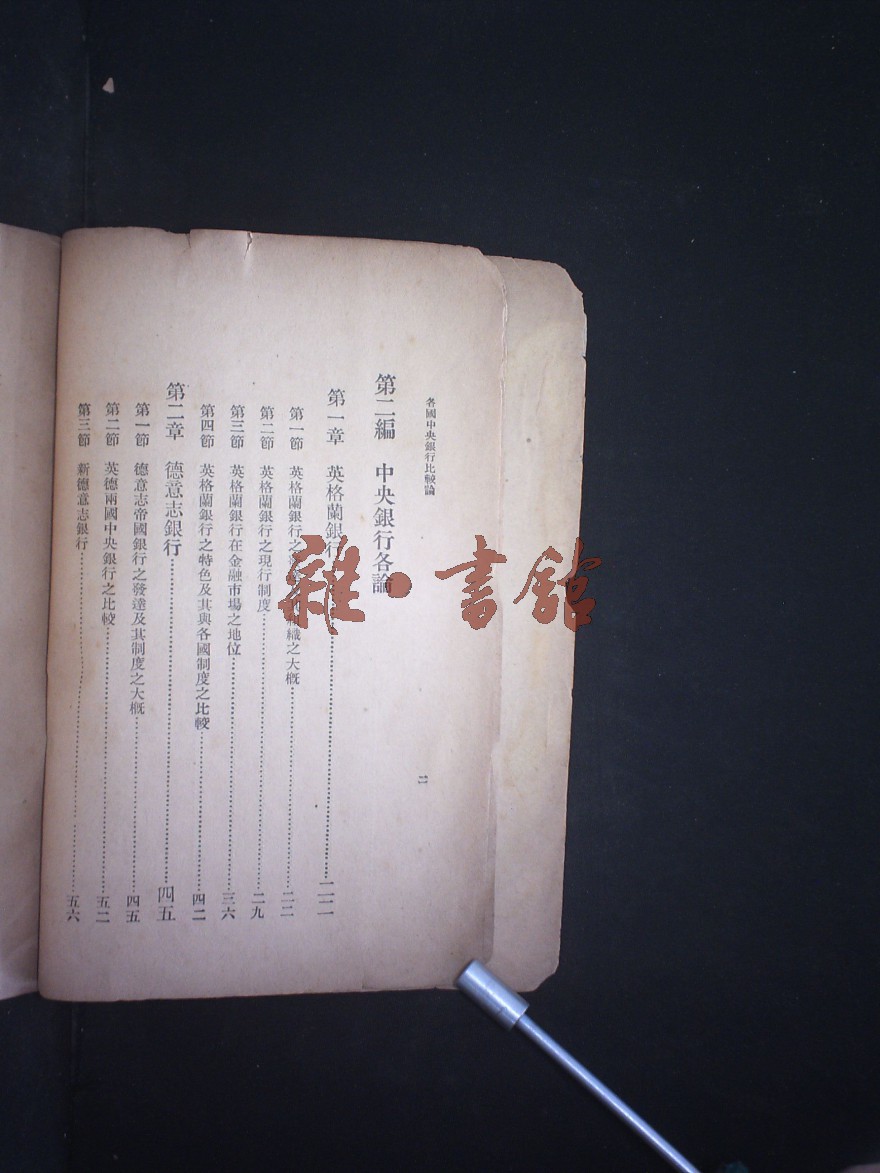 各國中央銀行比較論
二
第二編 中央銀行各論
第一章 英格蘭銀行……二二
第一節 英格蘭銀行之 組織之大概……二二
第二節 英格蘭銀行之現行制度……二九
第三節 英格蘭銀行在金融市場之地位……三六
第四節 英格蘭銀行之特色及其與各國制度之比較……四二
第二章 德意志銀行……四五
第一節 德意志帝國銀行之發達及其制度之大概……四五
第二節 英德兩國中央銀行之比較……五二
第三節 新德意志銀行……五六
雜·書館